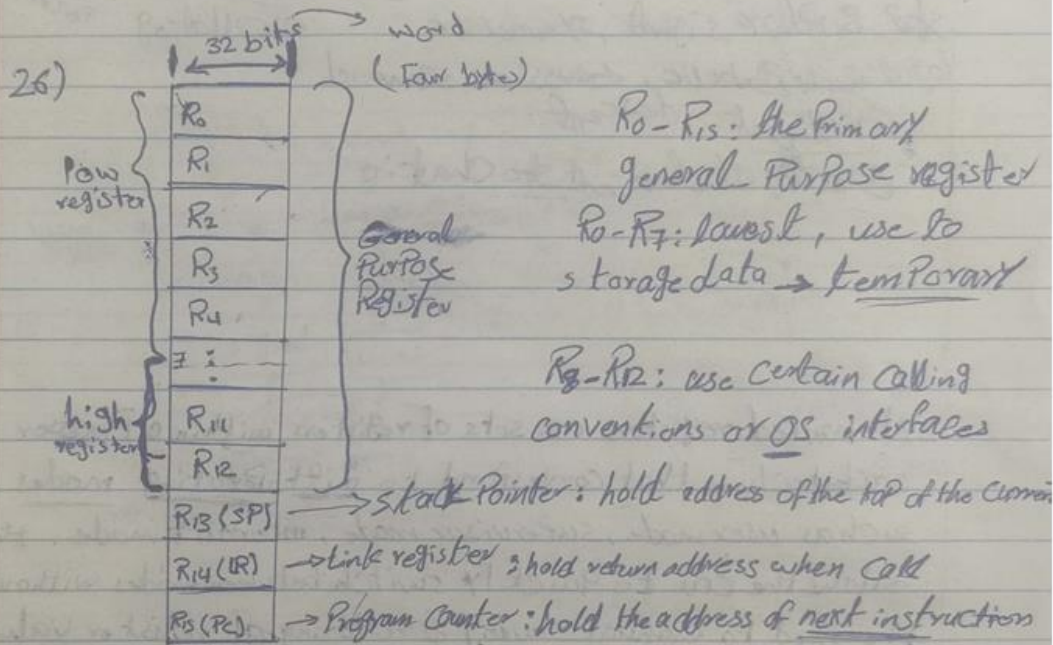 26)
32 bits → word
(Four bytes)
Low register
high register
R0
R1
R2
R3
R4
7 :
R11
R12
R13 (SP)
R14 (LR)
R15 (PC)
General
PurPose
Register
R0-R15: the Primary
general PurPose register
R0-R7: lowest, use to
storage data → temPorary
R8-R12: use Certain Calling
conventions or OS interfaces
→ Stack Pointer: hold address of the toP of the Current
→ Link register : hold return address when Call
→ Program Counter: hold the address of next instruction